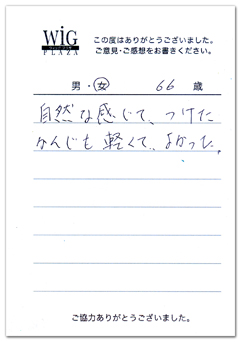 WIG
PLAZA
この度はありがとうございました。
ご意見・ご感想をお書きください。
男・女 66 歳
自然な感じで、つけた
かんじも軽くて、よかった。
ご協力ありがとうございました。